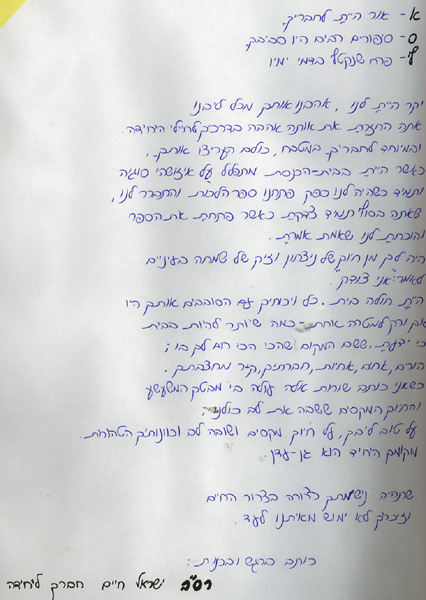 א - אור היית לחבריך,
ס - סיפורים רבים היו סביבך,
ף - פרח שנקטף בדמי ימיו
יקר היית לנו, אהבנו אותך מכל ליבנו
אתה החזרת את אותה אהבה בדרכיך לחיילי היחידה.
ובמיוחד לחבריך במטבח, כולם העריצו אותך,
כאשר היית בבית-הכנסת מתפלל על איזושהי סוגיה
ותמיד כשהיה לנו ספק פתחנו ספר הלכות והתברר לנו,
שאתה בסוף תמיד צדקת כאשר פתחת את הספר
והוכחת לנו שאמת אמרת.
היה לך מן חיוך של ניצחון וזיק של שמחה בעיניים
לאמר: "אני צודק"
היית חולה בית. כל ויכוחיך עם הסובבים אותך היו
אך ורק למטרה אחת - כמה שיותר להיות בבית
כי ידעת, ששם המקום שהכי הכי חם לך בו;
הורים, אחים, אחיות, חברתיך, וקיר מחצבתך.
כשאני כותב שורות אלה עולה בי מבטך המשעשע
והחיוך המקסים ששבה את לב כולנו;
על טוב ליבך, על חיוך מקסים ושובה לב וכוונותיך הטהורות.
מקומך היחיד הוא גן-עדן.
שתהיה נישמתך צרורה בצרור החיים
וזיכרך לא ימוש מאיתנו לעד.
כותב ברגש ובכנות:
רס"ב ישראל חיים חברך ליחידה